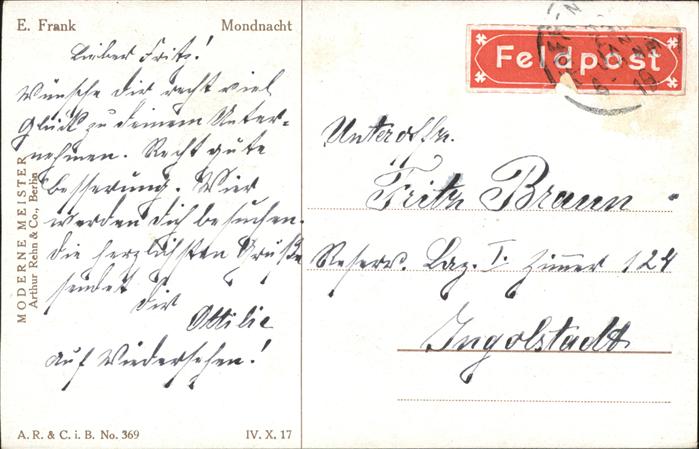 E. Frank Mondnacht
Lieber Fritz!
Wünsche dir recht viel
Glück zu deinem Unter-
nehmen. Recht gute
Besserung. Wir
werden dich besuchen.
die herzlichsten Grüße
sendet
dir
Ottilie
Auf Wiedersehen!
MODERNE MEISTER
Arthur Rehn & Co., Berlin
A. R. & C. i. B. No. 369 IV. X. 17
Feldpost
Unteroffz.
Fritz Braun
Reserv. Laz. I. Zimmer 124
Ingolstadt